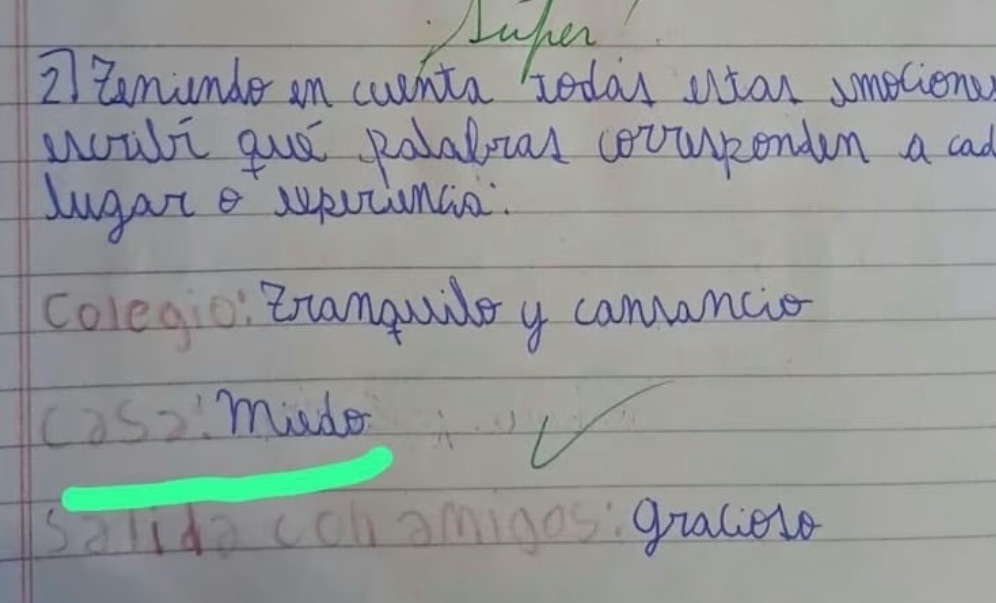 Súper!
2) Teniendo en cuenta todas estas emociones
escribí qué palabras corresponden a cad
lugar o experiencia:
Colegio: Tranquilo y cansancio
Casa: Miedo
Salida con amigos: gracioso